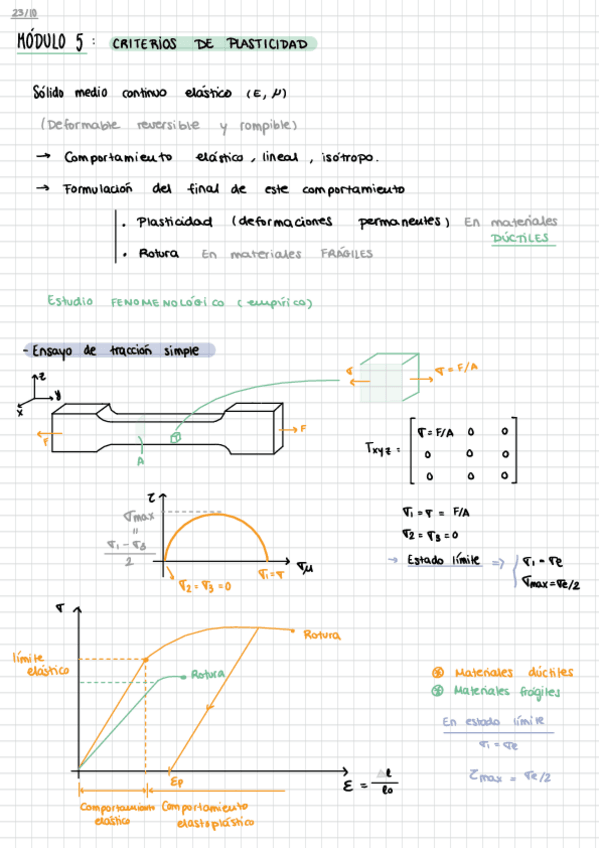 23/10
MÓDULO 5 : CRITERIOS DE PLASTICIDAD
Sólido medio continuo elástico (E, μ)
(Deformable reversible y rompible)
→ Comportamiento elástico, lineal, isótropo.
→ Formulación del final de este comportamiento
· Plasticidad (deformaciones permanentes) En materiales
DÚCTILES
· Rotura En materiales FRÁGILES
Estudio FENOMENOLÓGICO (empírico)
- Ensayo de tracción simple
z
y
x
F
F
A
σ
σ = F/A
Txyz =
σ = F/A 0 0
0 0 0
0 0 0
τ
σmax
=
σ1 - σ3
2
σμ
σ2 = σ3 = 0
σ1 = σ
σ1 = σ = F/A
σ2 = σ3 = 0
→ Estado límite => σ1 = σe
σmax = σe/2
σ
límite
elástico
Rotura
Rotura
Ep
ε = Δl
l0
Comportamiento
elástico
Comportamiento
elastoplástico
Materiales dúctiles
Materiales frágiles
En estado límite
σ1 = σe
τmax = σe/2